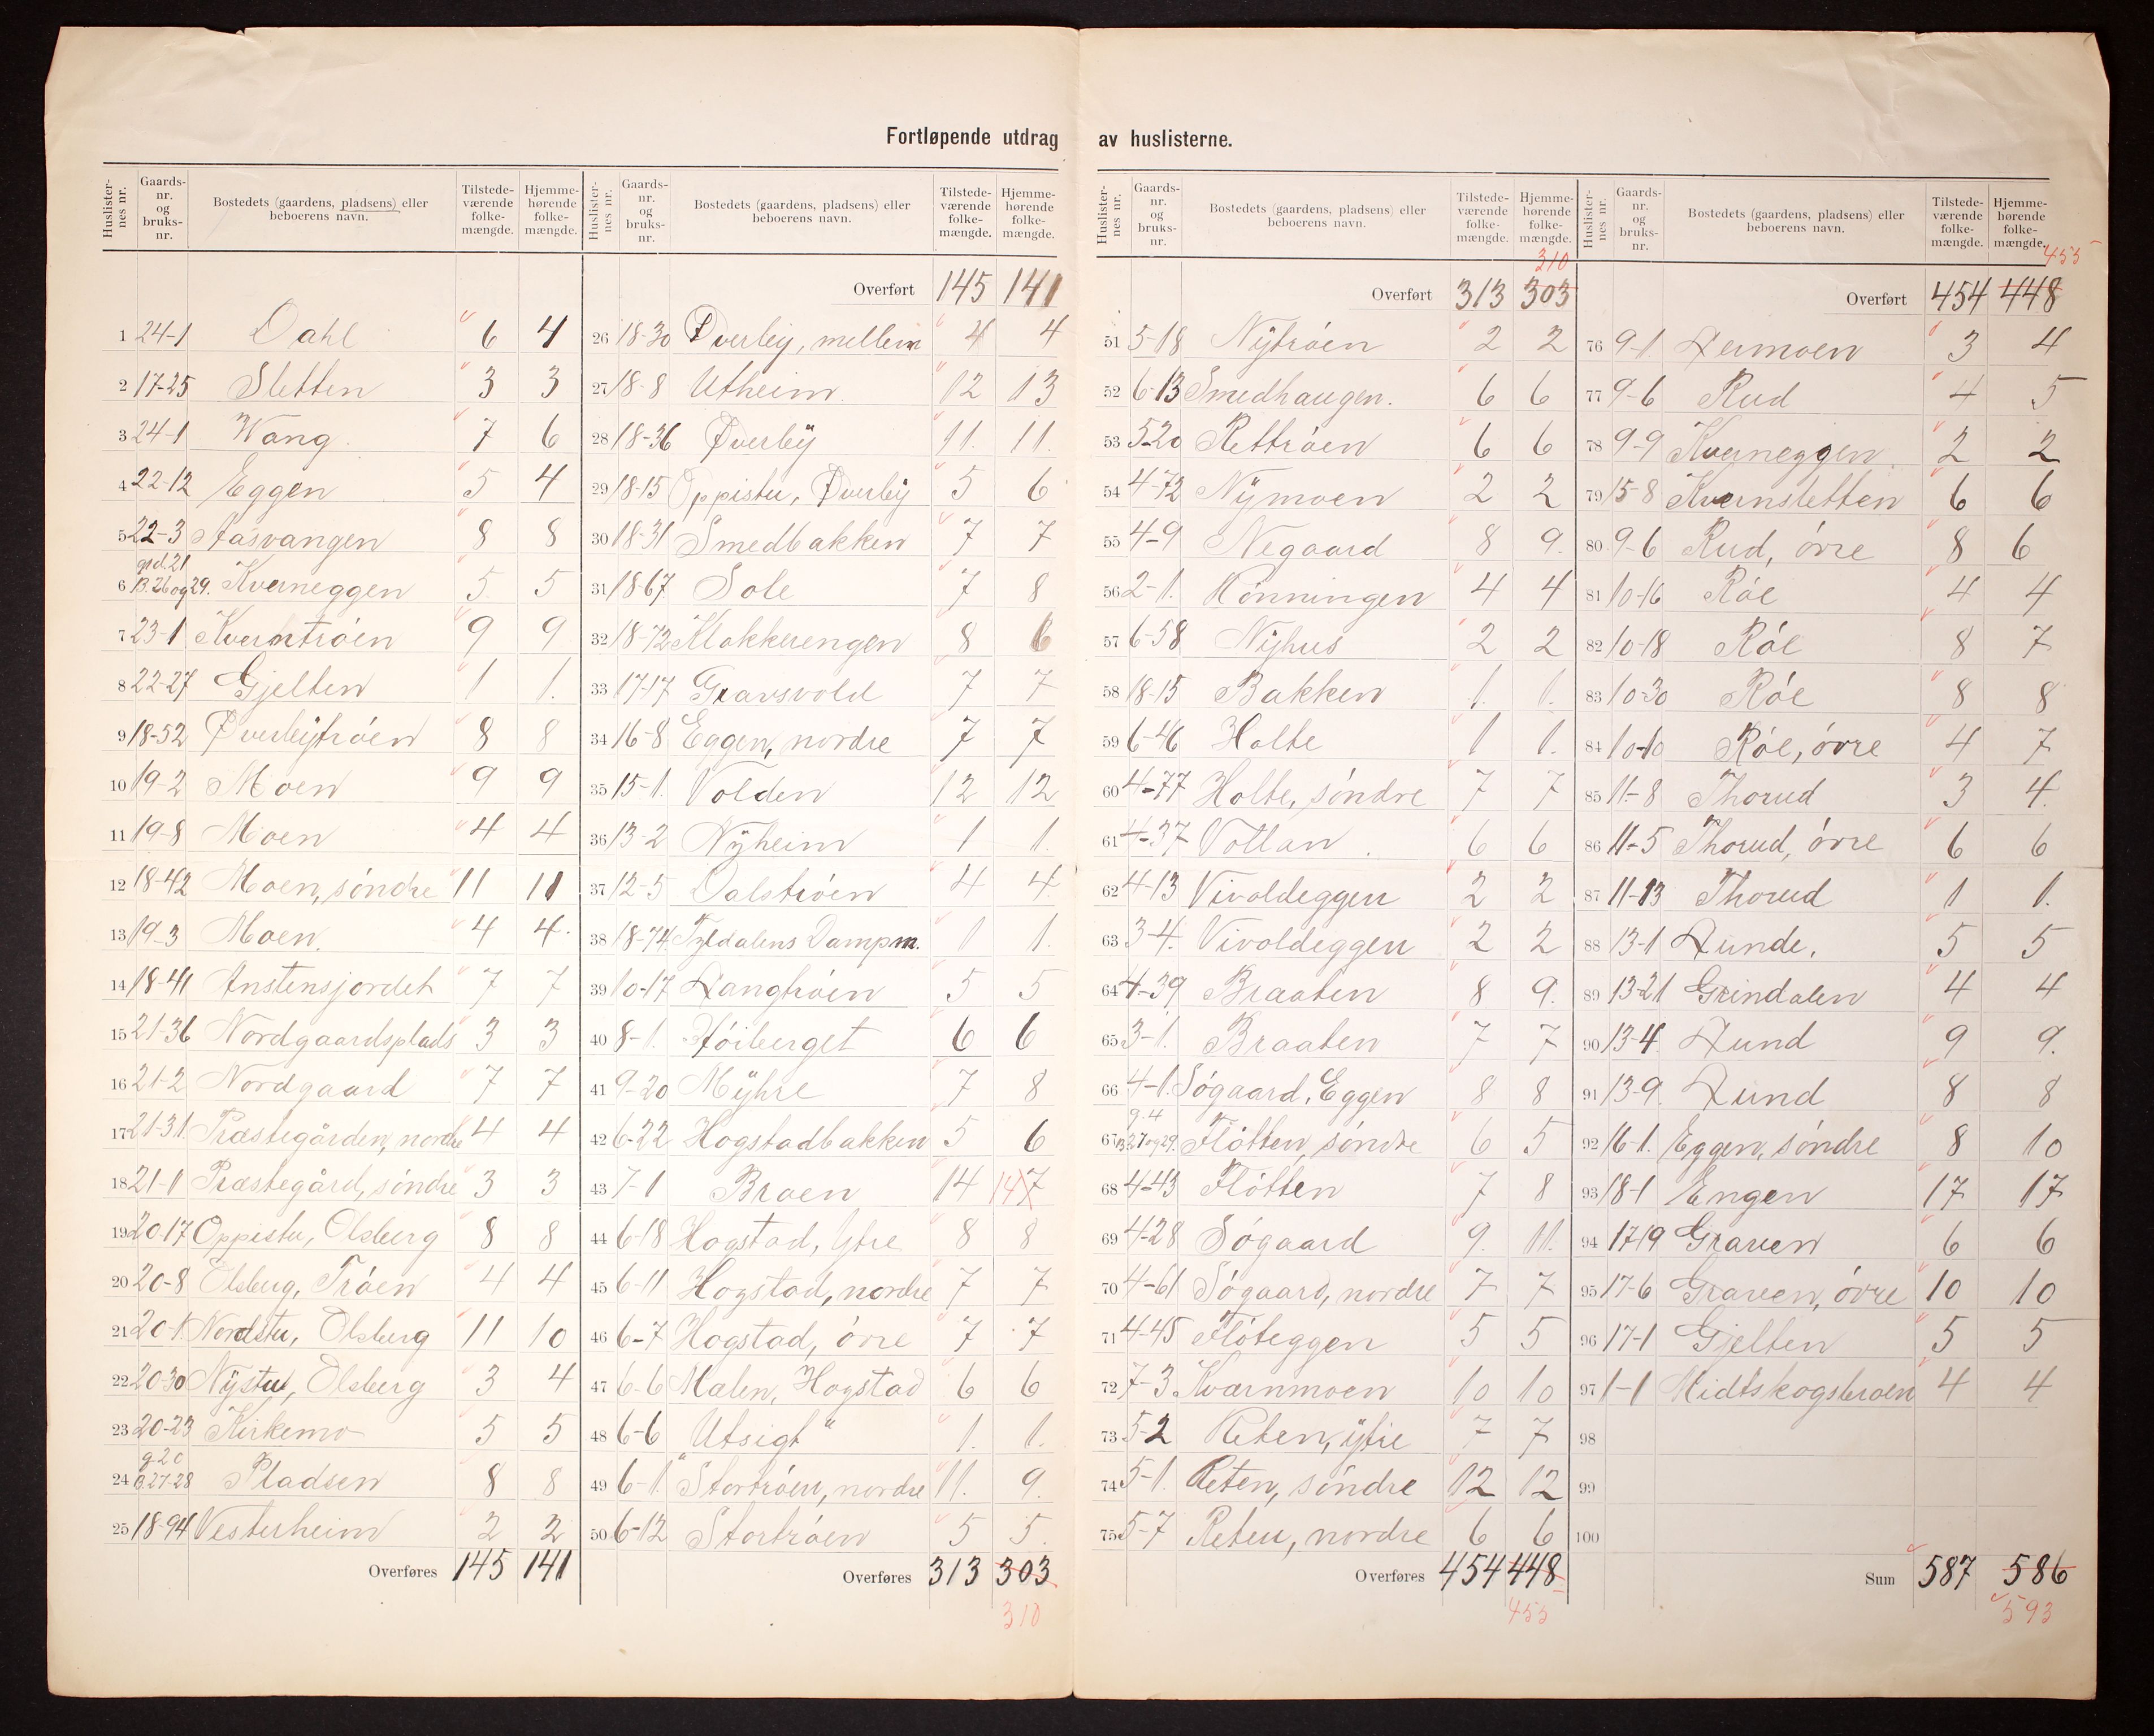 Fortløpende utdrag av huslisterne.
Huslisternes nr. Gaards-nr. og bruks-nr. Bostedets (gaardens, pladsens) eller beboerens navn. Tilstede-værende folke-mængde. Hjemme-hørende folke-mængde.
1 24-1 Dahl 6 4
2 17-25 Sletten 3 3
3 24-1 Wang 7 6
4 22-12 Eggen 5 4
5 22-3 Aasvangen 8 8
6 grd. 21 B. 26 og 29. Kverneggen 5 5
7 23-1 Kverntrøen 9 9
8 22-27 Gjelten 1 1.
9 18-52 Øverbytrøen 8 8
10 19-2 Moen 9 9
11 19-8 Moen 4 4
12 18-42 Moen, søndre 11 11
13 19-3 Moen. 4 4.
14 18-41 Anstensjordet 7 7
15 21-36 Nordgaardsplads 3 3
16 21-2 Nordgaard 7 7
17 21-31. Præstegården, nordre 4 4
18 21-1 Præstegård, søndre 3 3
19 20-17 Oppistu, Elsberg 8 8
20 20-8 Elsberg, Trøen 4 4
21 20-1. Nordstu, Elsberg 11 10
22 20-30 Nystu, Elsberg 3 4
23 20-23 Kirkemo 5 5
24 g 20 B. 27-28 Pladsen 8 8
25 18-94 Vesterheim 2 2
Overføres 145 141
Huslisternes nr. Gaards-nr. og bruks-nr. Bostedets (gaardens, pladsens) eller beboerens navn. Tilstede-værende folke-mængde. Hjemme-hørende folke-mængde.
Overført 145 141
26 18-30 Øverby, mellem 4 4
27 18-8 Utheim. 12 13
28 18-36 Øverby 11. 11.
29 18-15 Oppistu, Øverby 5 6
30 18-31 Smedbakken 7 7
31 18-67. Sole 7 8
32 18-72 Klokkerengen 8 6
33 17-17 Gravsvold 7 7
34 16-8 Eggen, nordre 7 7
35 15-1. Volden 12 12
36 13-2 Nyheim 1 1.
37 12-5 Dalstrøen 4 4.
38 18-74. Tyldalens Dampm. 1 1.
39 10-17 Langtrøen 5 5
40 8-1. Høiberget 6 6
41 9-20 Myhre 7 8
42 6-22 Hogstadbakken 5 6
43 7-1 Broen 14 14 7
44 6-18 Hogstad, Ytre 8 8
45 6-11 Hogstad, nordre 7 7
46 6-7 Hogstad, øvre 7 7
47 6-6 Mælen, Hogstad 6 6
48 6-6 "Utsigt" 1. 1.
49 6-1. Stortrøen, nordre 11. 9.
50 6-12 Stortrøen 5 5.
Overføres 313 303
310
Huslisternes nr. Gaards-nr. og bruks-nr. Bostedets (gaardens, pladsens) eller beboerens navn. Tilstede-værende folke-mængde. Hjemme-hørende folke-mængde.
310
Overført 313 303
51 5-18 Nytrøen 2 2
52 6-13 Smedhaugen. 6 6
53 5-20 Rettrøen 6 6
54 4-72 Nymoen 2 2
55 4-9 Negaard 8 9.
56 2-1. Rønningen 4 4
57 6-58 Nyhus 2 2
58 18-15 Bakken 1. 1.
59 6-46 Holte 1 1.
60 4-77 Holte, søndre 7 7
61 4-37 Vollan. 6 6
62 4-13 Vivoldeggen 2 2
63 3-4. Vivoldeggen 2 2
64 4-39 Braaten 8 9.
65 3-1. Braaten 7 7
66 4-1. Søgaard, Eggen 8 8
67 g. 4 B. 27 og 29. Fløtten, søndre 6 5
68 4-43 Fløtten 7 8
69 4-28 Søgaard 9. 11.
70 4-61 Søgaard, nordre 7 7
71 4-45 Fløteggen 5 5
72 7-3 Kværnmoen 10 10
73 5-2 Reten, ytre 7 7
74 5-1. Reten, søndre 12 12
75 5-7 Reten, nordre 6 6
Overføres 454 448
455
Huslisternes nr. Gaards-nr. og bruks-nr. Bostedets (gaardens, pladsens) eller beboerens navn. Tilstede-værende folke-mængde. Hjemme-hørende folke-mængde.
455
Overført 454 448
76 9-1. Lermoen 3 4
77 9-6 Rud 4 5
78 9-9 Kverneggen. 2 2
79 15-8 Kvernsletten 6 6
80 9-6 Rud, øvre 8 6
81 10-16 Røe 4 4
82 10-18 Røe 8 7
83 10-30 Røe 8 8
84 10-10 Røe, øvre 4 7
85 11-8 Thorud 3 4.
86 11-5 Thorud, øvre 6 6
87 11-13 Thorud 1 1.
88 13-1 Lunde. 5 5
89 13-21 Grindalen 4 4
90 13-4 Lund 9 9.
91 13-9. Lund 8 8
92 16-1. Eggen, søndre 8 10
93 18-1 Engen 17 17
94 17-19 Graven 6 6
95 17-6 Graven, øvre 10 10
96 17-1 Gjelten 5 5
97 1-1 Midtskogsbroen 4 4
98
99
100
Sum 587 586
593